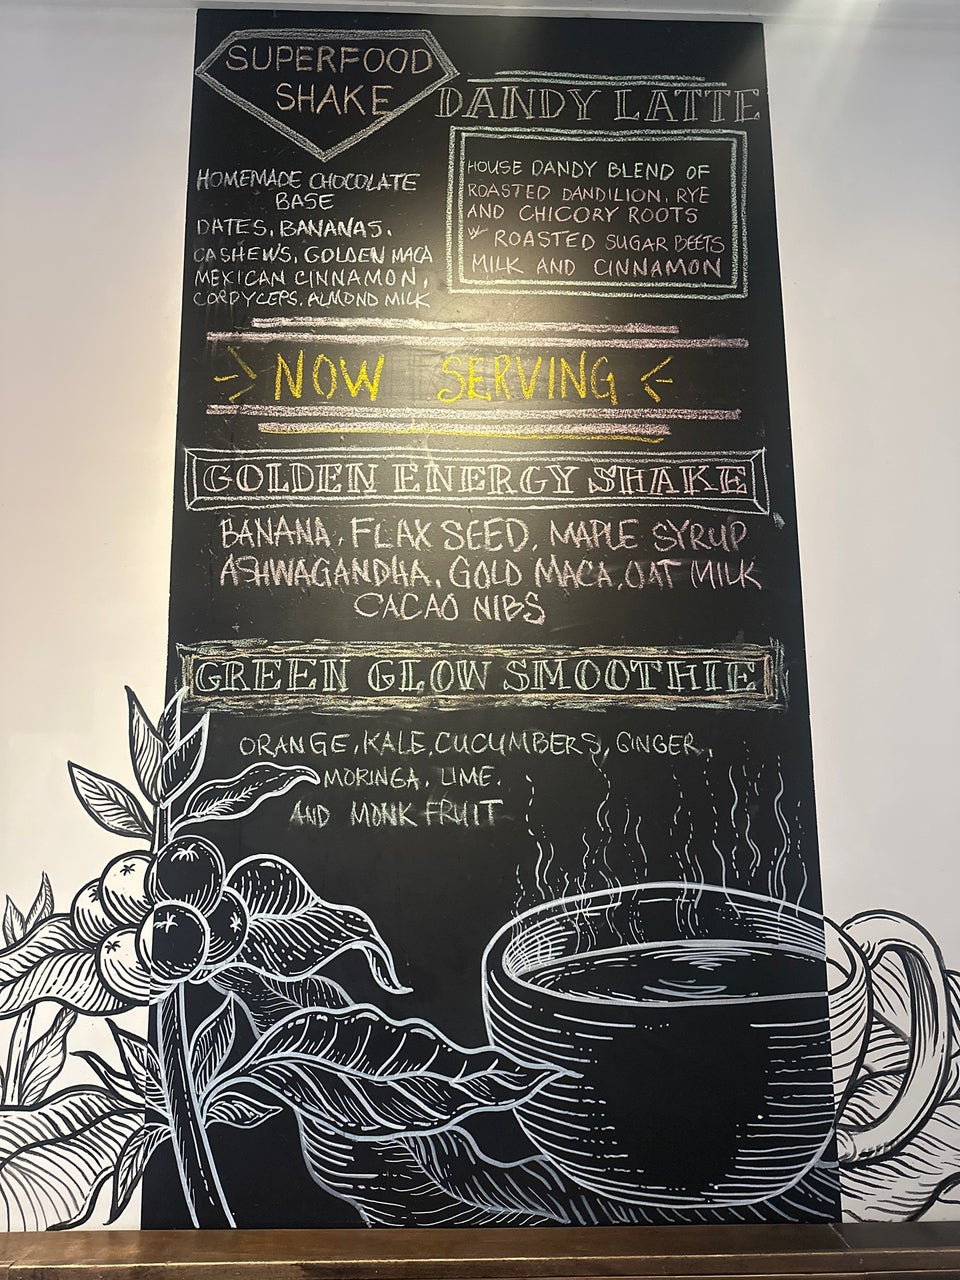 SUPERFOOD
SHAKE
HOMEMADE CHOCOLATE
BASE
DATES, BANANAS,
CASHEWS, GOLDEN MACA
MEXICAN CINNAMON,
CORDYCEPS, ALMOND MILK
DANDY LATTE
HOUSE DANDY BLEND OF
ROASTED DANDILION, RYE
AND CHICORY ROOTS
W/ ROASTED SUGAR BEETS
MILK AND CINNAMON
-> NOW SERVING <-
GOLDEN ENERGY SHAKE
BANANA, FLAX SEED, MAPLE SYRUP
ASHWAGANDHA, GOLD MACA, OAT MILK
CACAO NIBS
GREEN GLOW SMOOTHIE
ORANGE, KALE, CUCUMBERS, GINGER,
MORINGA, LIME,
AND MONK FRUIT